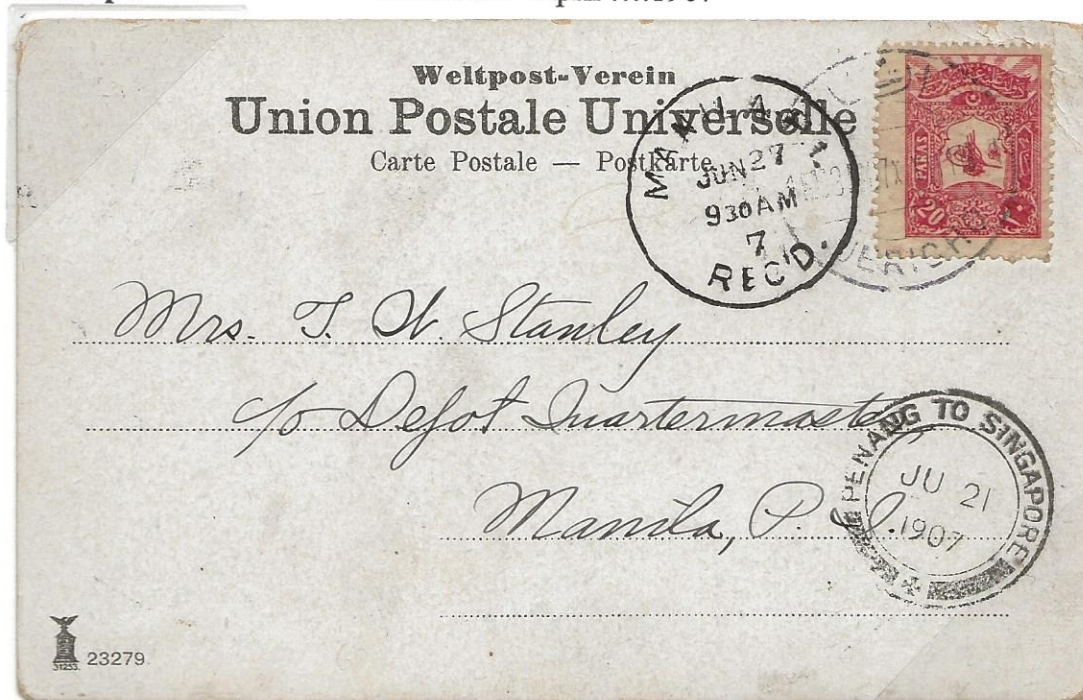 1907
Weltpost-Verein
Union Postale Universelle
Carte Postale — Postkarte
MANILA P.I.
JUN 27
930AM
7
REC'D.
JERICHO
PARAS
20
Mrs. T. W. Stanley
c/o Depot Quartermaster
Manila, P. I.
PENANG TO SINGAPORE
JU 21
1907
23279.